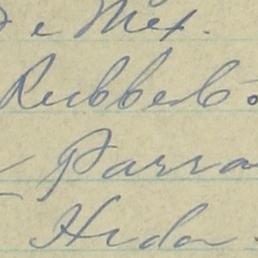 de Mex.
Rubber Co
Parra
Hida